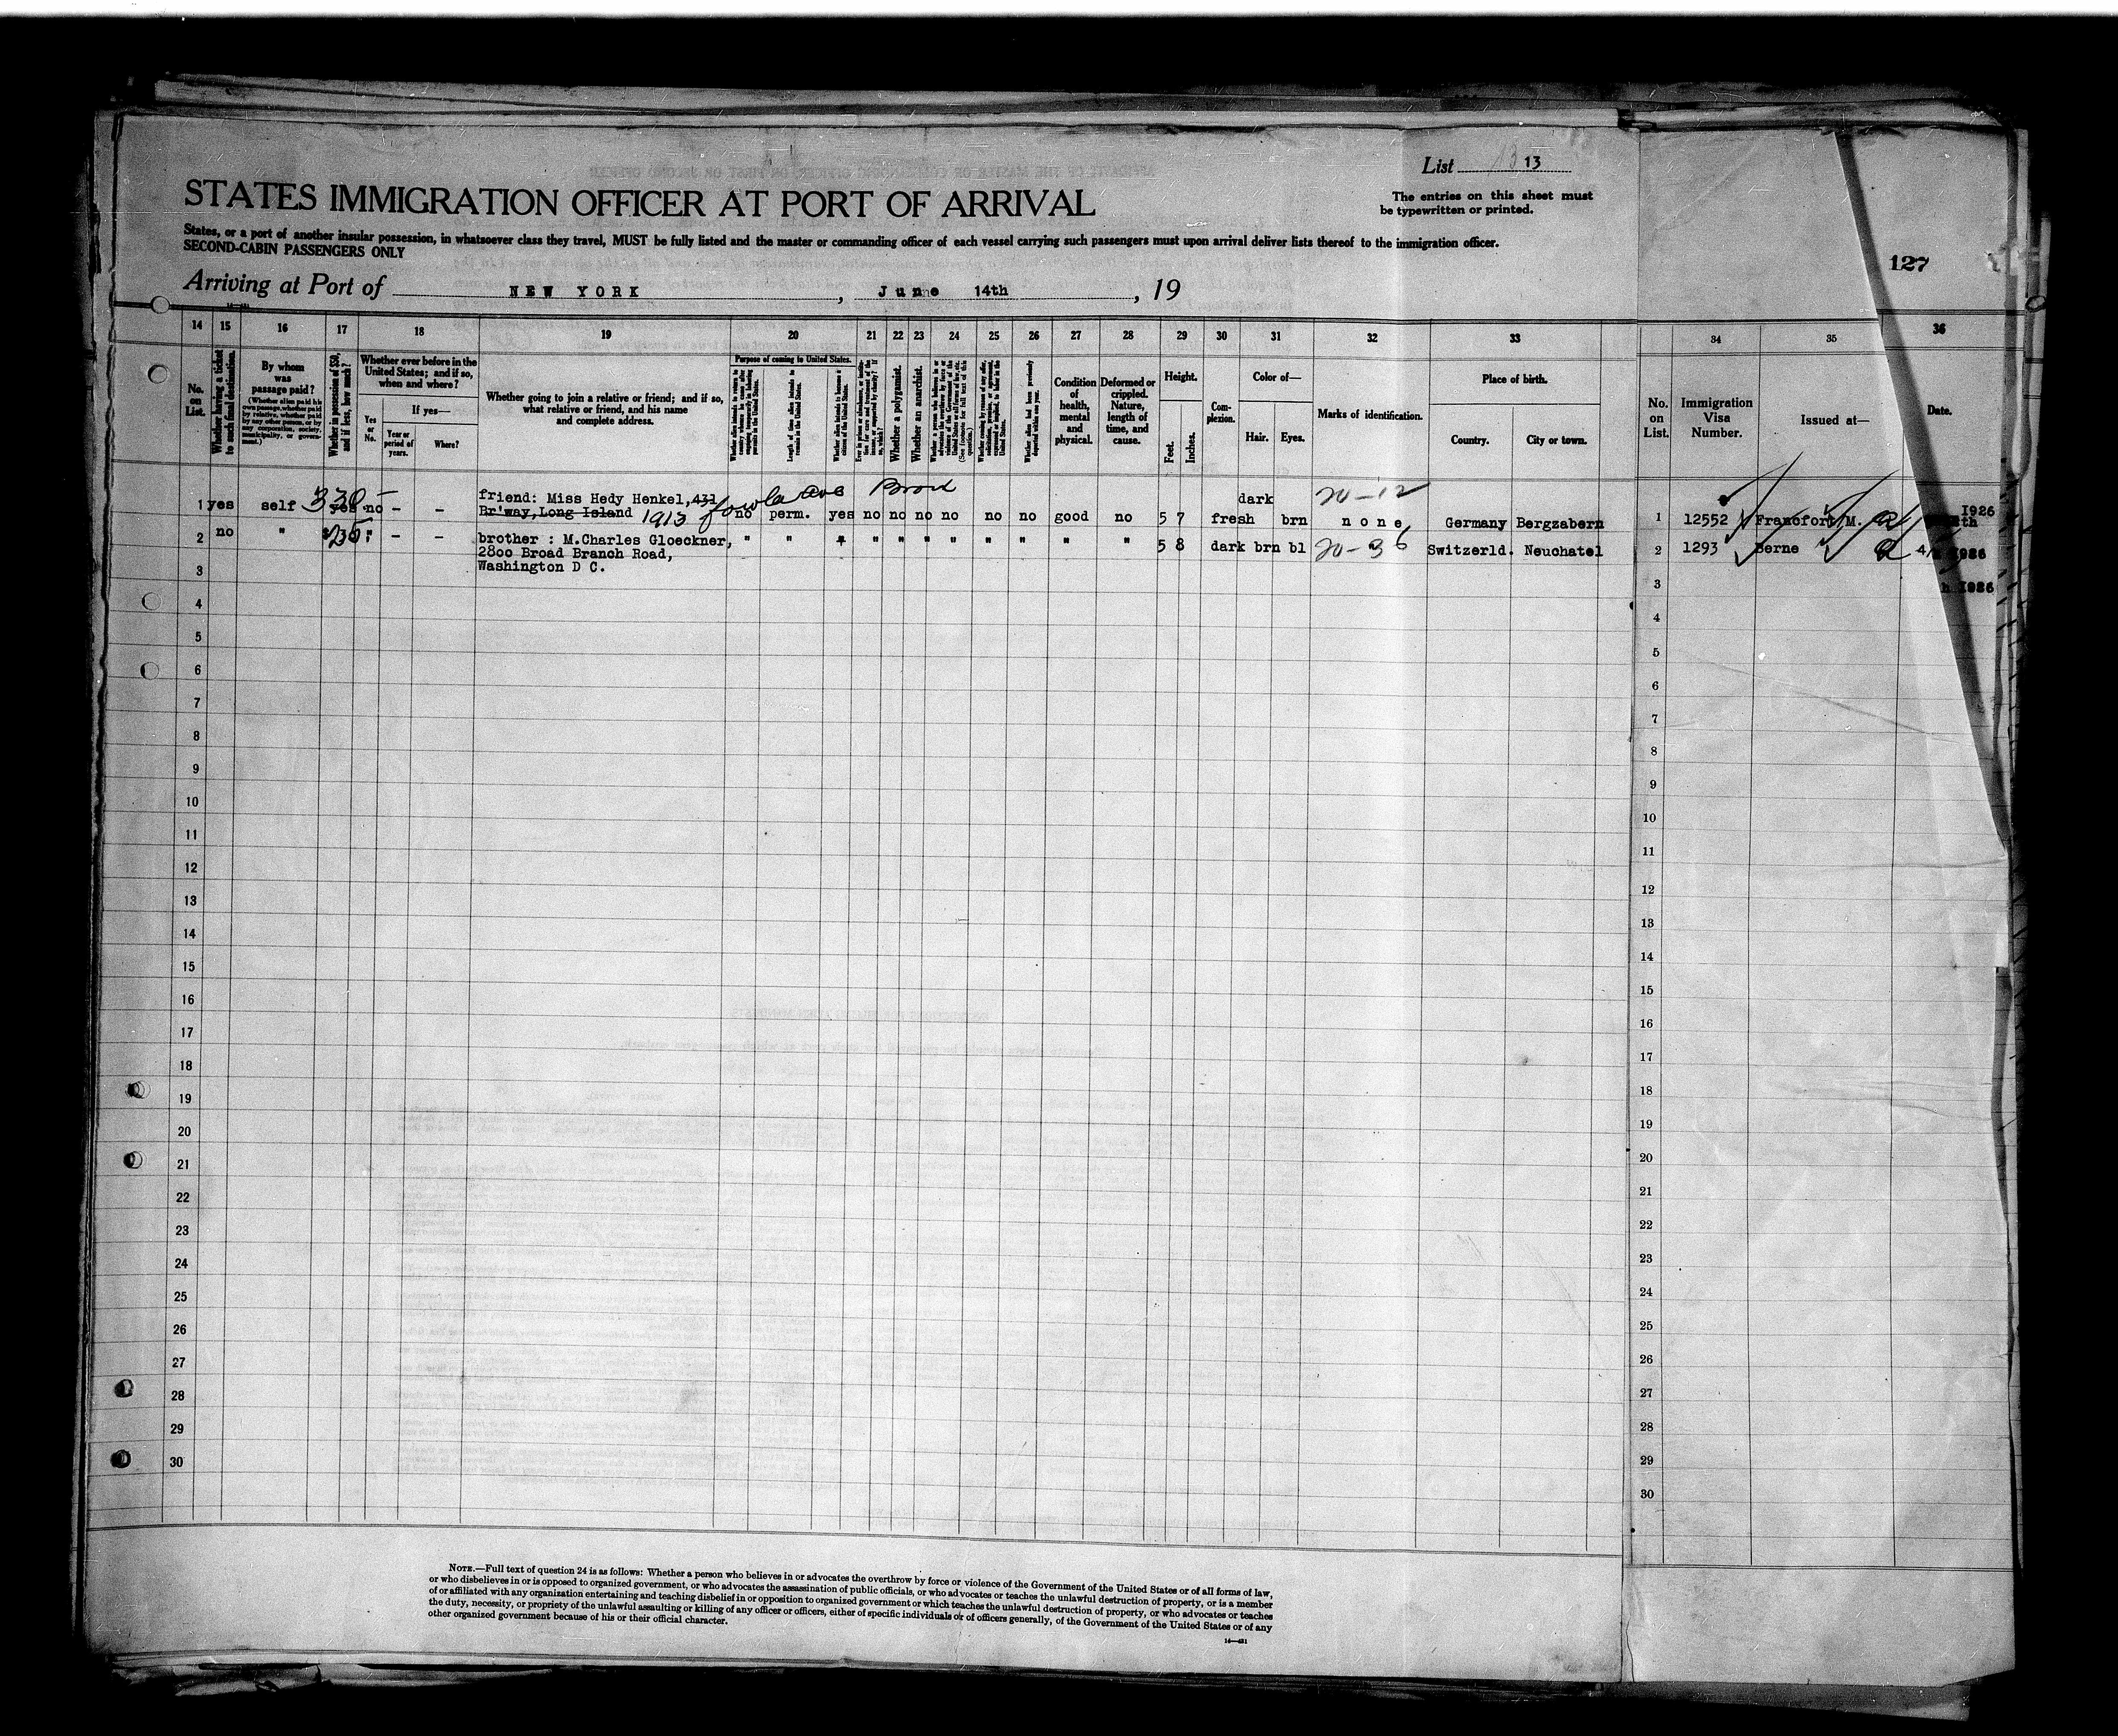 List 13 13
STATES IMMIGRATION OFFICER AT PORT OF ARRIVAL
The entries on this sheet must
be typewritten or printed.
States, or a port of another insular possession, in whatsoever class they travel, MUST be fully listed and the master or commanding officer of each vessel carrying such passengers must upon arrival deliver lists thereof to the immigration officer.
SECOND-CABIN PASSENGERS ONLY
127
Arriving at Port of NEW YORK, June 14th, 19
14 15 16 17 18 19 20 21 22 23 24 25 26 27 28 29 30 31 32 33 34 35 36
No. on List.
Whether having a ticket to such final destination.
By whom was passage paid?
(Whether alien paid his own passage, whether paid by relative, whether paid by any other person, or by any corporation, society, municipality, or government.)
Whether in possession of $50, and if less, how much?
Whether ever before in the United States; and if so, when and where?
Yes or No.
If yes—
Year or period of years.
Where?
Whether going to join a relative or friend; and if so, what relative or friend, and his name and complete address.
Purpose of coming to United States.
Length of time alien intends to remain in the United States.
Whether alien intends to become a citizen of the United States.
Whether a polygamist.
Whether an anarchist.
Whether alien had been previously deported within one year.
Condition of health, mental and physical.
Deformed or crippled. Nature, length of time, and cause.
Height.
Feet.
Inches.
Complexion.
Color of—
Hair.
Eyes.
Marks of identification.
Place of birth.
Country.
City or town.
No. on List.
Immigration Visa Number.
Issued at—
Date.
1 yes self 330- yes no - - friend: Miss Hedy Henkel, 431 dark 20-12
Br'way, Long Island 1913 no perm. yes no no no no no no good no 5 7 fresh brn none Germany Bergzabern 1 12552 Francfort M. 1926
2 no " 35 " - - brother : M.Charles Gloeckner, " " " " " " " " " " " 5 8 dark brn bl 20-36 Switzerld. Neuchatel 2 1293 Berne
2800 Broad Branch Road,
Washington D C.
3 3
4 4
5 5
6 6
7 7
8 8
9 9
10 10
11 11
12 12
13 13
14 14
15 15
16 16
17 17
18 18
19 19
20 20
21 21
22 22
23 23
24 24
25 25
26 26
27 27
28 28
29 29
30 30
NOTE.—Full text of question 24 is as follows: Whether a person who believes in or advocates the overthrow by force or violence of the Government of the United States or of all forms of law,
or who disbelieves in or is opposed to organized government, or who advocates the assassination of public officials, or who advocates or teaches the unlawful destruction of property, or is a member
of or affiliated with any organization entertaining and teaching disbelief in or opposition to organized government or which teaches the unlawful destruction of property, or who advocates or teaches
the duty, necessity, or propriety of the unlawful assaulting or killing of any officer or officers, either of specific individuals or of officers generally, of the Government of the United States or of any
other organized government because of his or their official character.
14—431